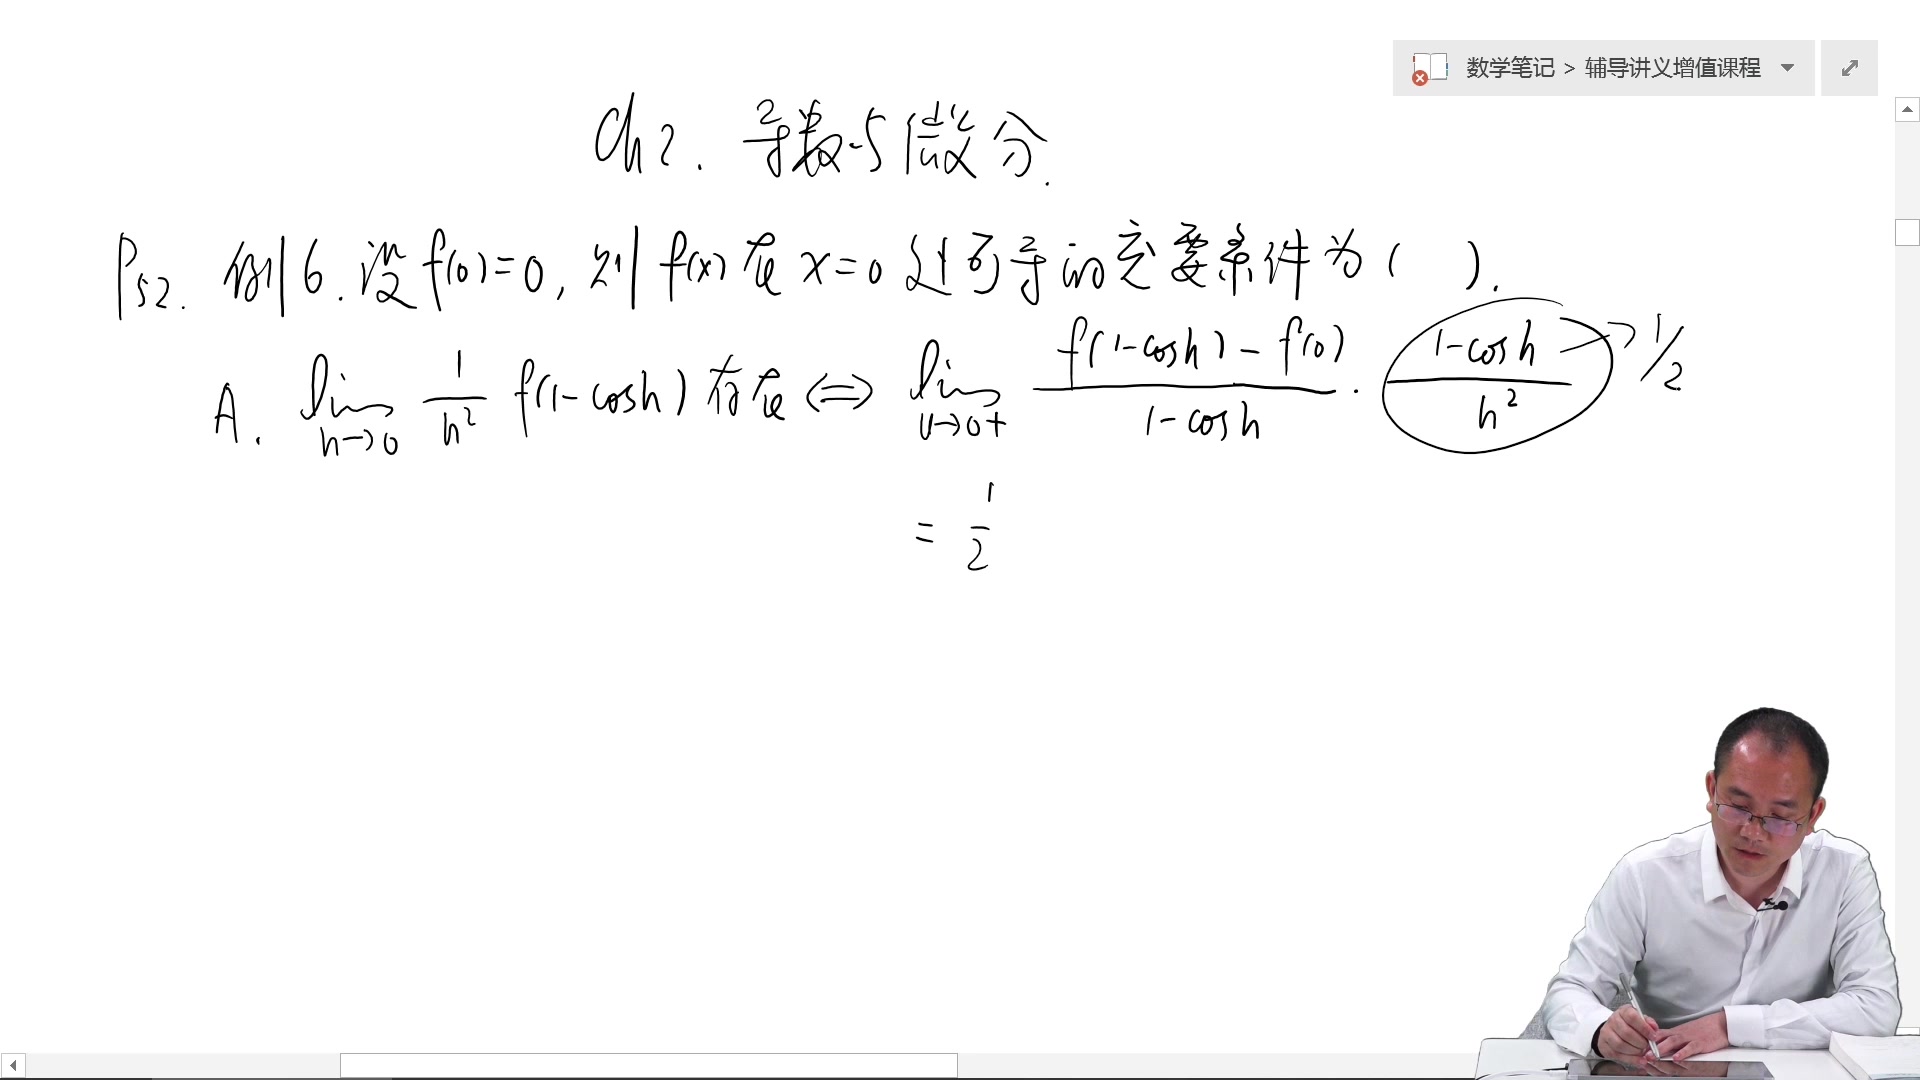 数学笔记 > 辅导讲义增值课程
Ch2. 导数与微分.
P52. 例6. 设 f(0)=0, 则 f(x) 在 x=0 处可导的充要条件为 ( ).
A. lim_{h→0} \frac{1}{h^2} f(1-cosh) 存在 ⇔ lim_{u→0+} \frac{f(1-cosh)-f(0)}{1-cosh} · \frac{1-cosh}{h^2} → 1/2
= \frac{1}{2}